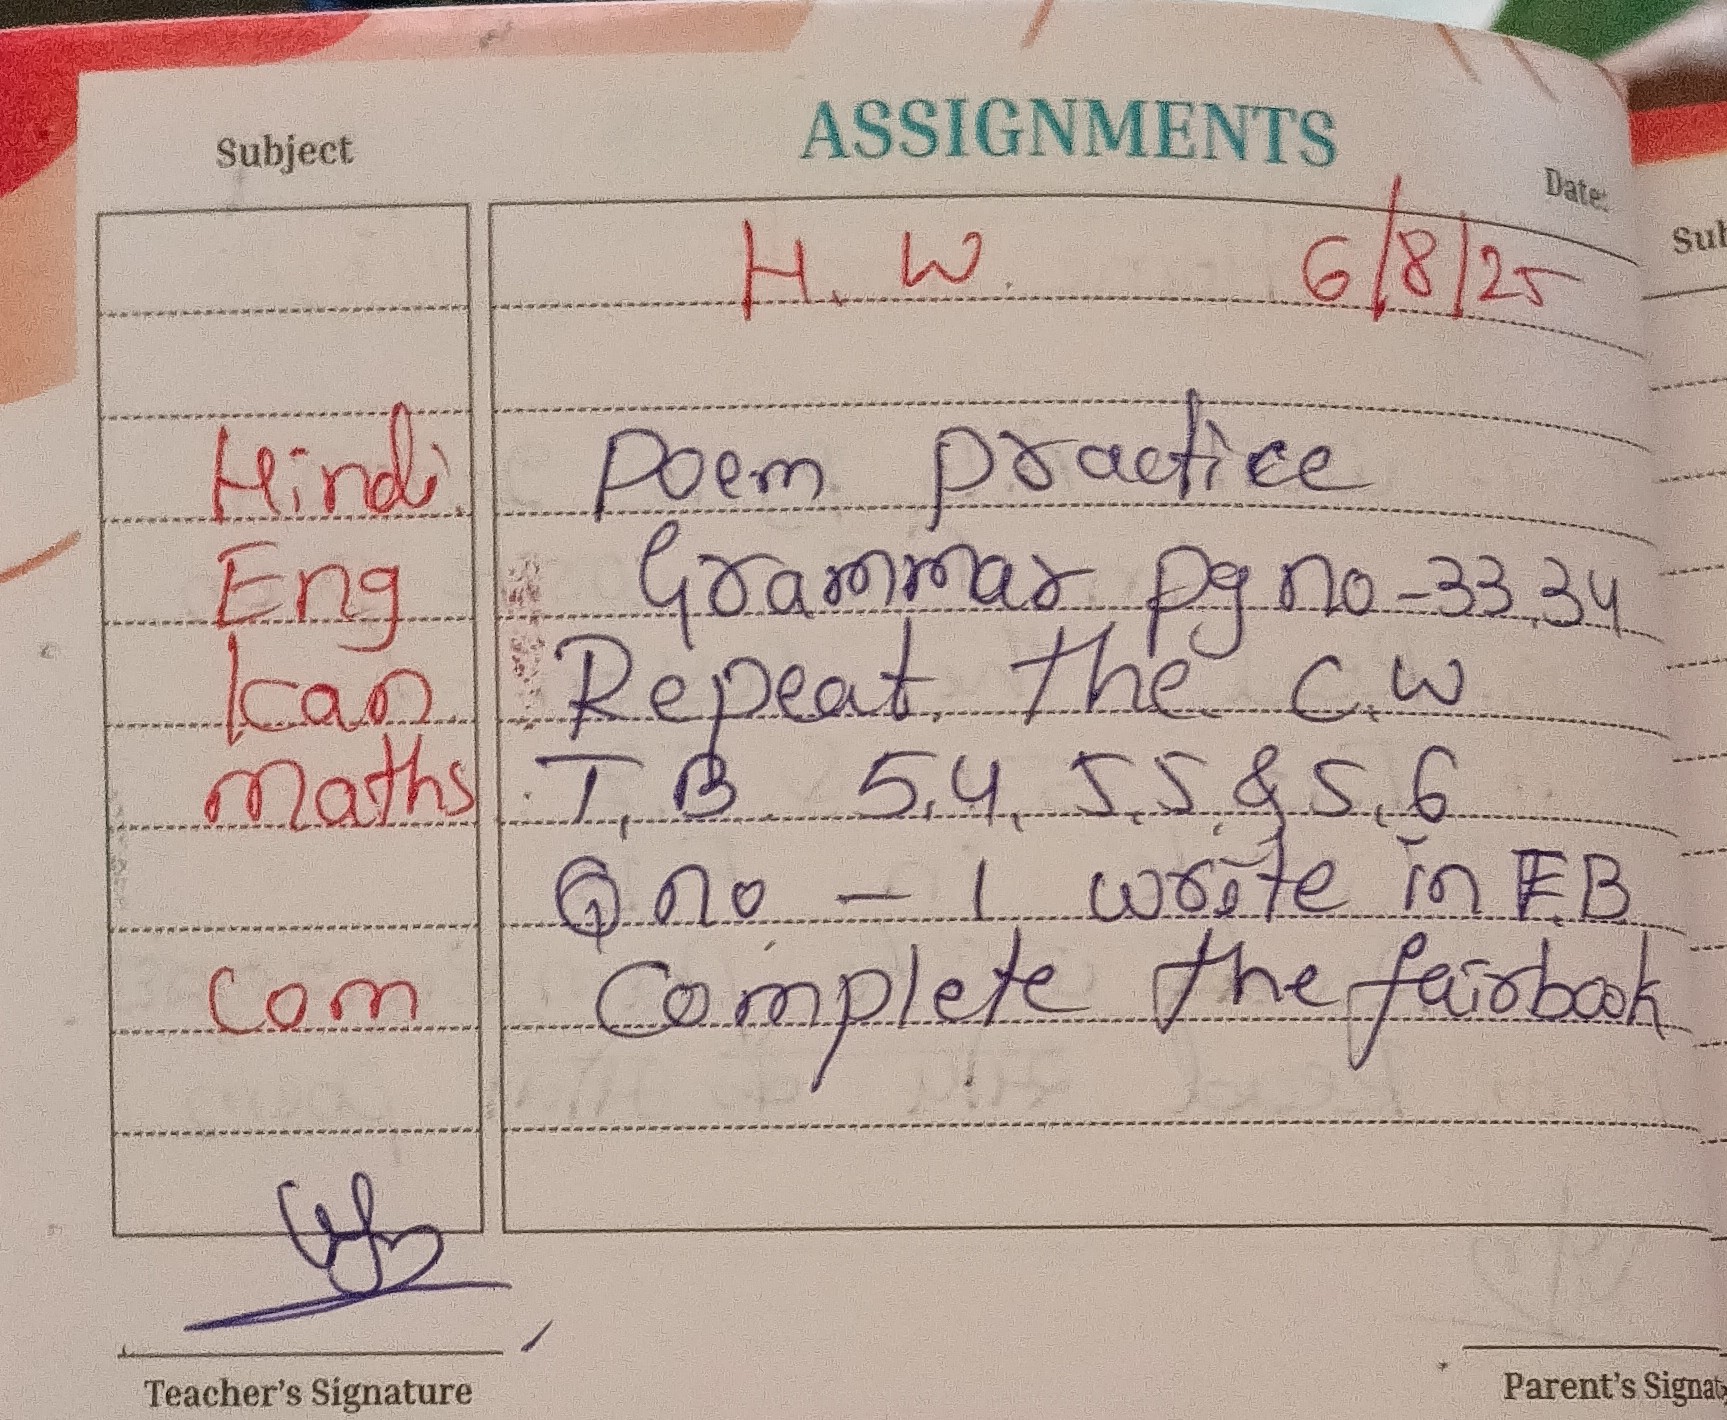 Subject ASSIGNMENTS
Date:
Sub
H. W. 6/8/25
Hindi Poem practice
Eng Grammar pg no - 33, 34
Kan Repeat the C.W
Maths T.B 5.4, 5.5 & 5.6
Q no - 1 write in F.B
Com Complete the fairbook
Teacher's Signature Parent's Signat